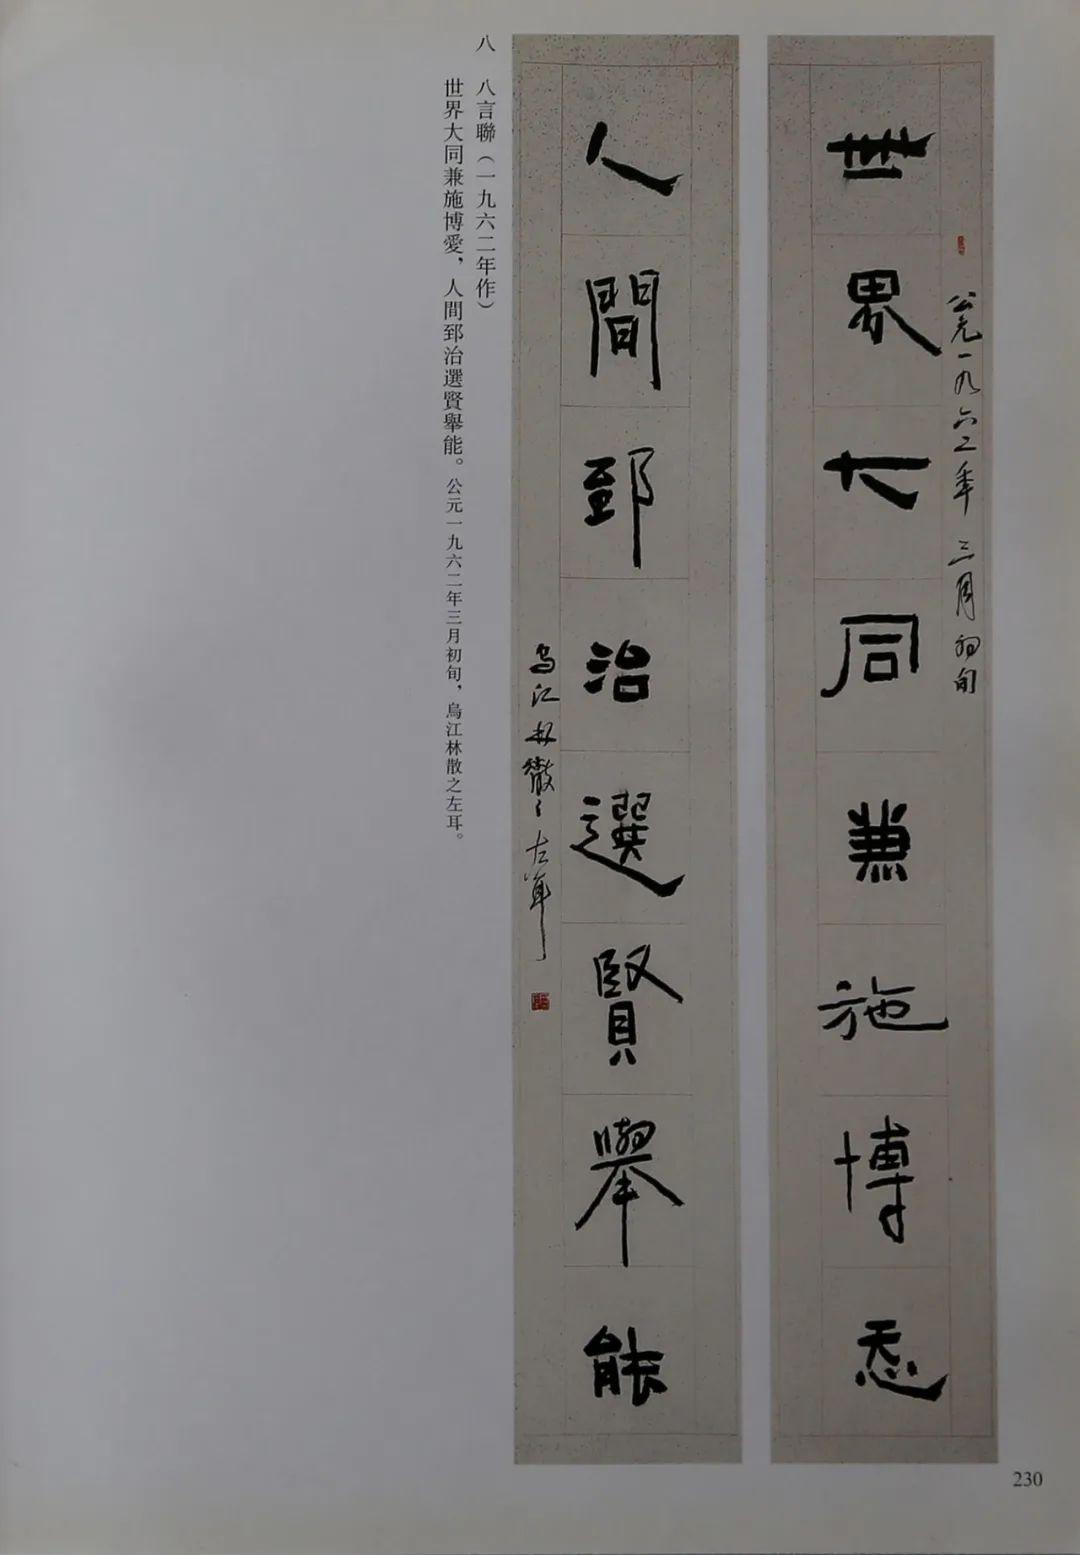 世界大同兼施博㤅
公元一九六二年三月初旬
人間郅治選賢舉能
烏江林散之左耳
八　八言聯（一九六二年作）
世界大同兼施博愛，人間郅治選賢舉能。公元一九六二年三月初旬，烏江林散之左耳。
230